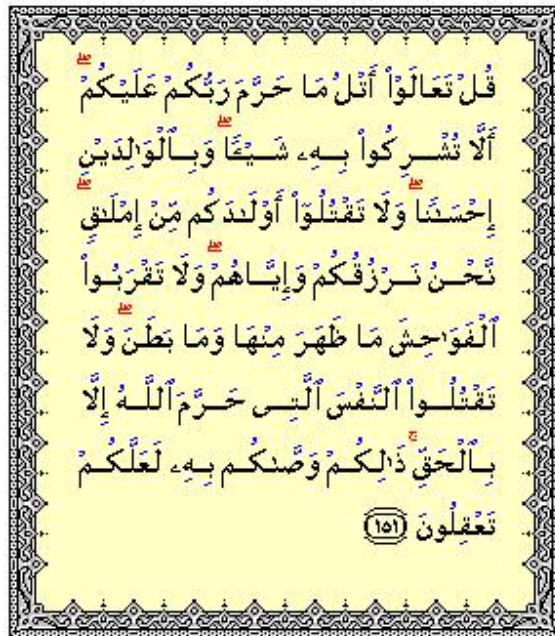 قُلْ تَعَالَوْا۟ أَتْلُ مَا حَرَّمَ رَبُّكُمْ عَلَيْكُمْ ۖ
أَلَّا تُشْرِكُوا۟ بِهِۦ شَيْـًٔا ۖ وَبِٱلْوَٰلِدَيْنِ
إِحْسَـٰنًا ۖ وَلَا تَقْتُلُوٓا۟ أَوْلَـٰدَكُم مِّنْ إِمْلَـٰقٍ ۖ
نَّحْنُ نَرْزُقُكُمْ وَإِيَّاهُمْ ۖ وَلَا تَقْرَبُوا۟
ٱلْفَوَٰحِشَ مَا ظَهَرَ مِنْهَا وَمَا بَطَنَ ۖ وَلَا
تَقْتُلُوا۟ ٱلنَّفْسَ ٱلَّتِى حَرَّمَ ٱللَّـهُ إِلَّا
بِٱلْحَقِّ ۚ ذَٰلِكُمْ وَصَّىٰكُم بِهِۦ لَعَلَّكُمْ
تَعْقِلُونَ ﴿١٥١﴾